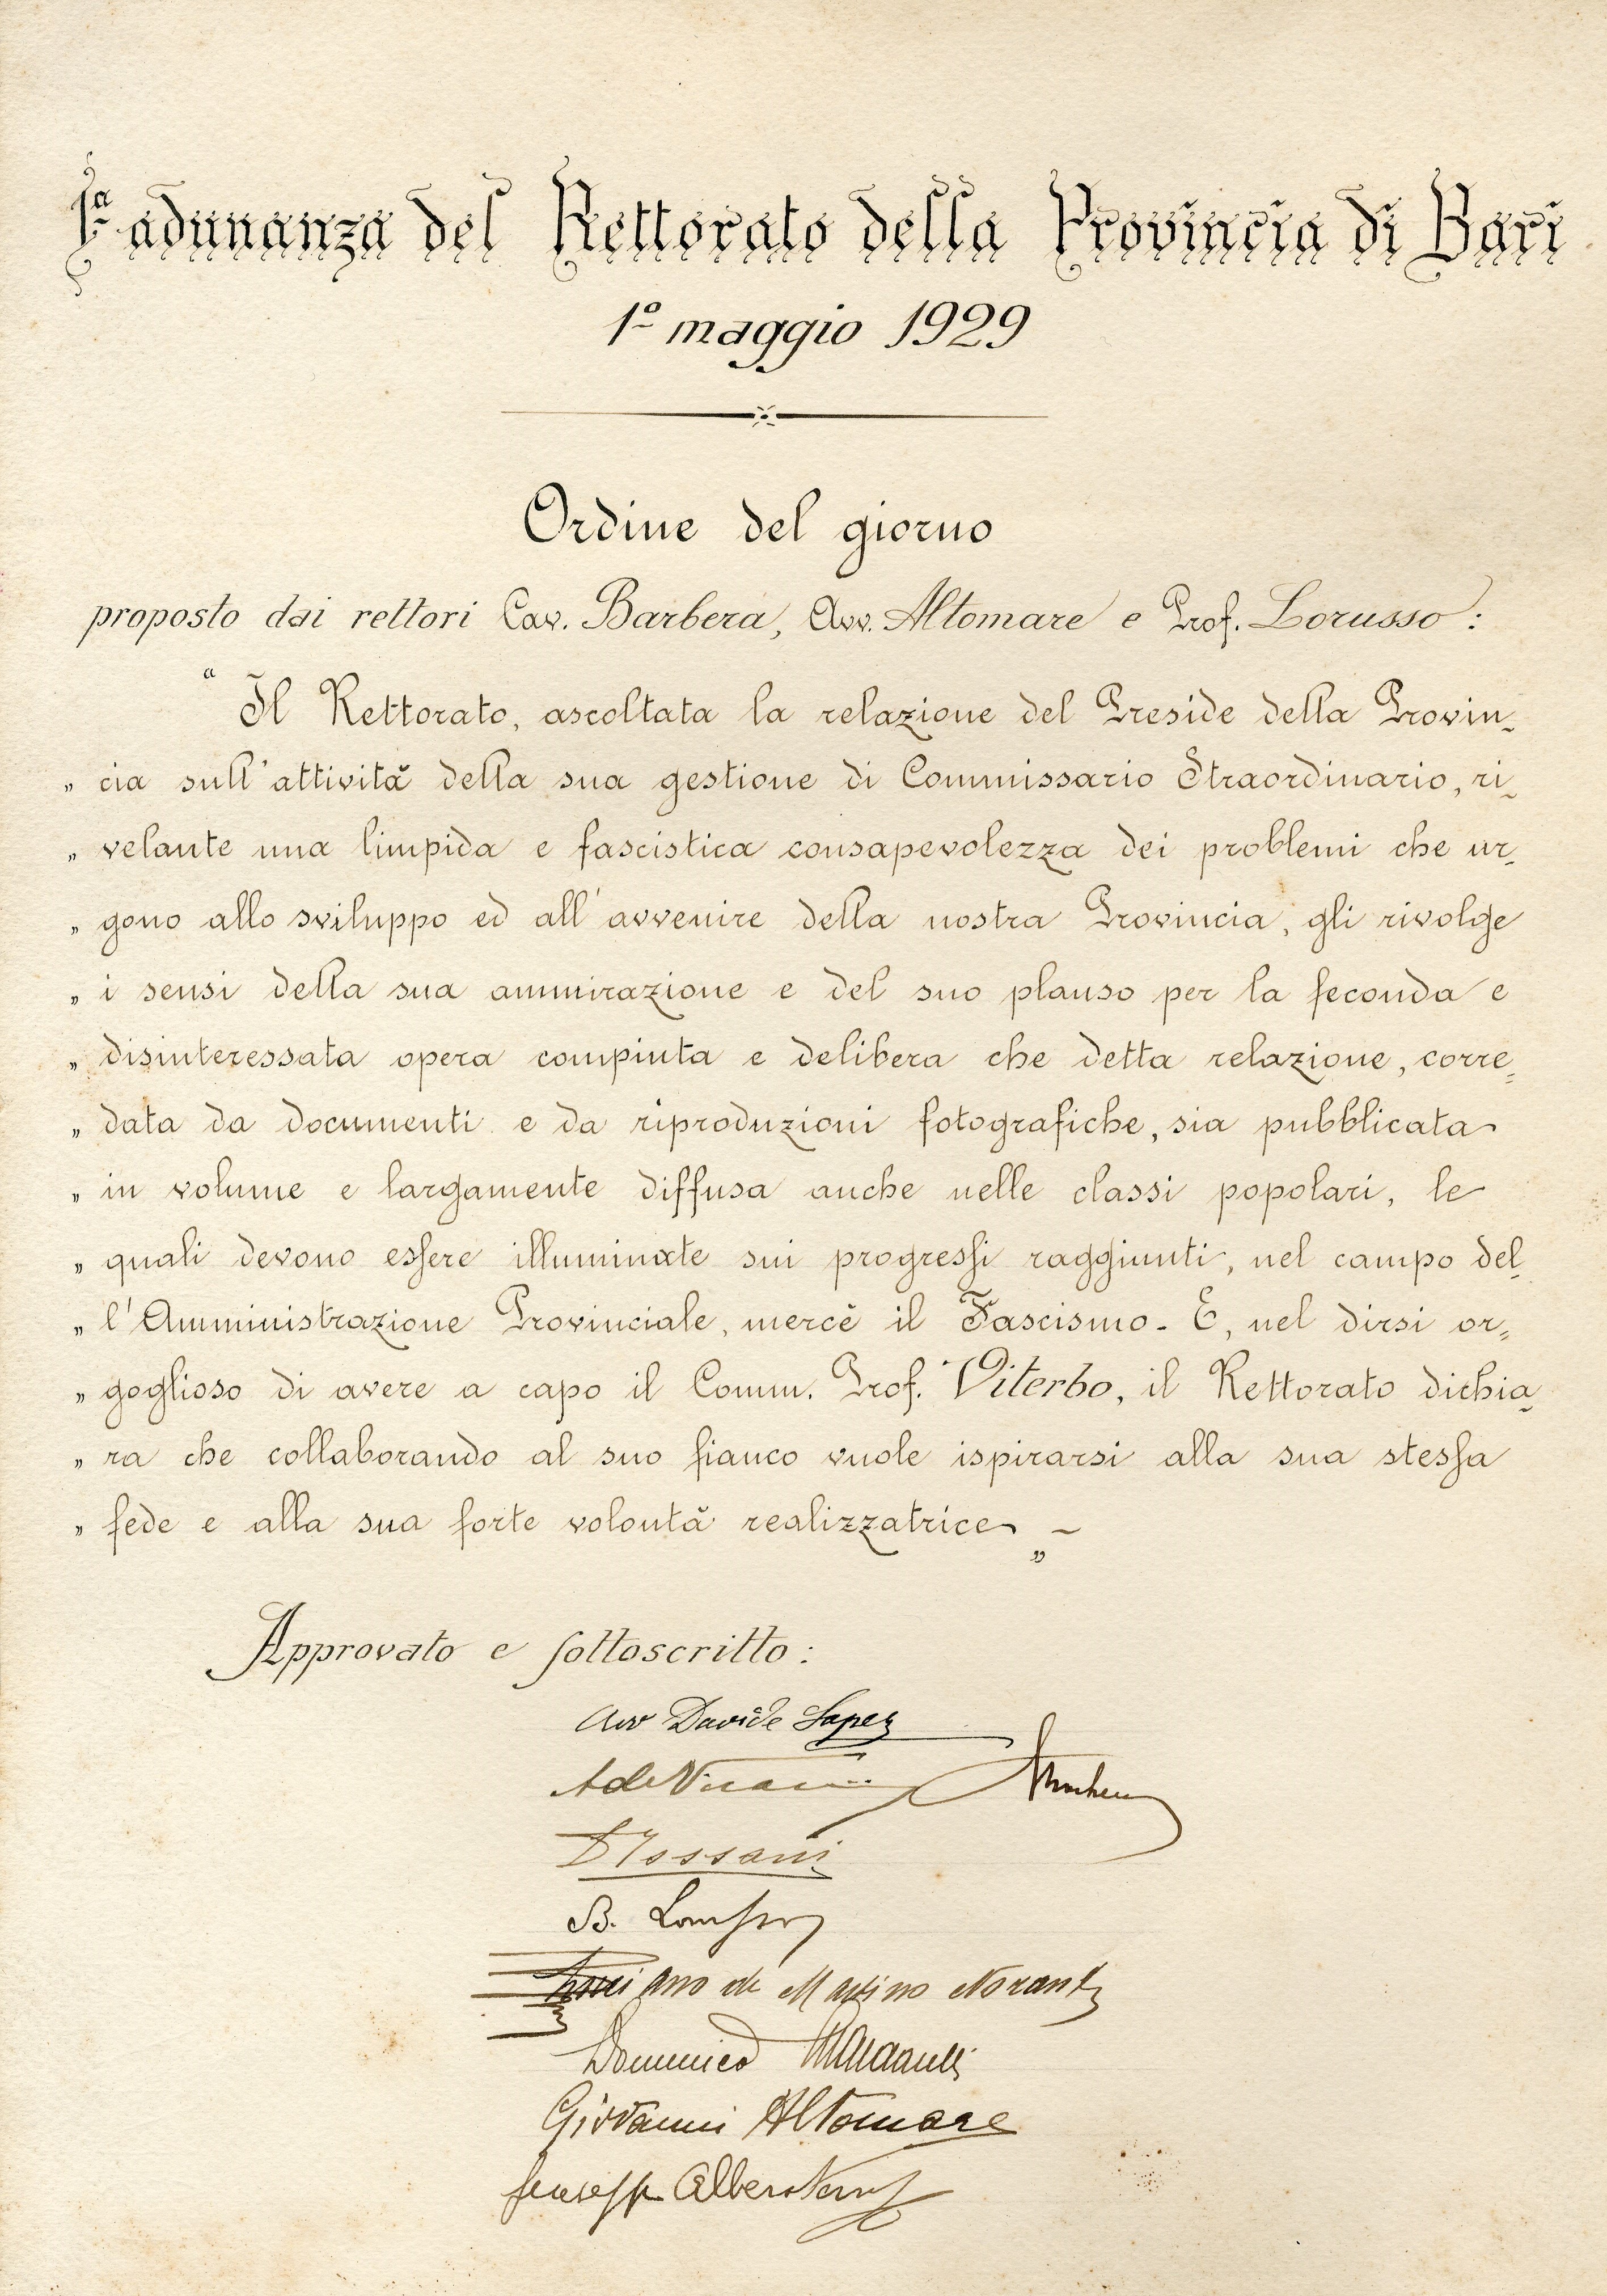 1ª adunanza del Rettorato della Provincia di Bari
1º maggio 1929
Ordine del giorno
proposto dai rettori Cav. Barbera, Avv. Altomare e Prof. Lorusso:
“ Il Rettorato, ascoltata la relazione del Preside della Provin-
„ cia sull'attività della sua gestione di Commissario Straordinario, ri-
„ velante una limpida e fascistica consapevolezza dei problemi che ur-
„ gono allo sviluppo ed all'avvenire della nostra Provincia, gli rivolge
„ i sensi della sua ammirazione e del suo plauso per la feconda e
„ disinteressata opera compiuta e delibera che detta relazione, corre=
„ data da documenti e da riproduzioni fotografiche, sia pubblicata
„ in volume e largamente diffusa anche nelle classi popolari, le
„ quali devono essere illuminate sui progressi raggiunti, nel campo del-
„ l'Amministrazione Provinciale, mercè il Fascismo - E, nel dirsi or=
„ goglioso di avere a capo il Comm. Prof. Viterbo, il Rettorato dichia-
„ ra che collaborando al suo fianco vuole ispirarsi alla sua stessa
„ fede e alla sua forte volontà realizzatrice „ -
Approvato e sottoscritto:
Avv Davide Lopez
D Tossani
B. Lorusso
de Martino Norante
Domenico
Giovanni Altomare
Giuseppe